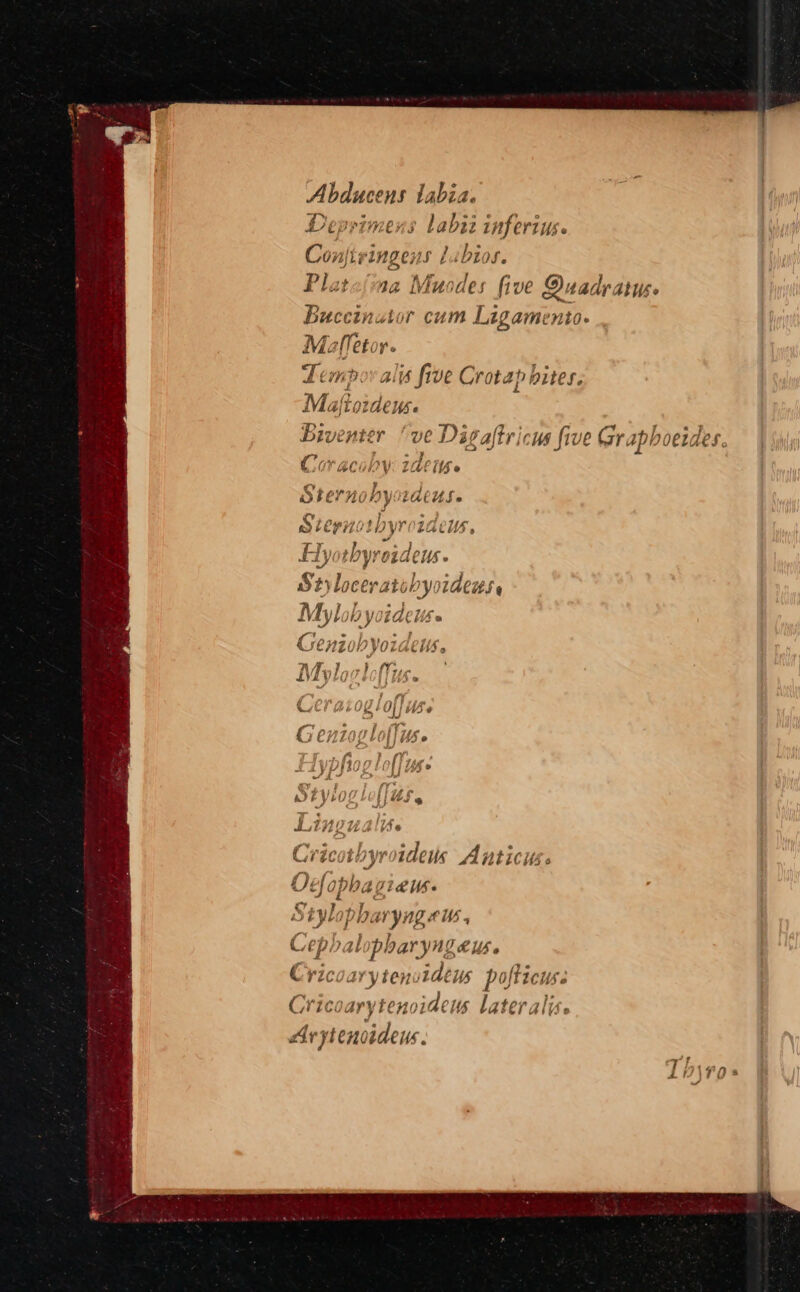 Abducens labia.
Deprimens labii inferius.
Conſtringens labios.
Platiſma Muodes ſive Quadratus.
Buccinator cum Ligamento.
Maſſetor.
Temporalis ſive Crotaphites.
Maſtoideus.
Biventer ſive Digaſtricus ſive Graphoeides.
Coracohyoideus.
Sternohyoideus.
Sternothyroideus.
Hyothyroideus.
Styloceratohyoideus,
Mylohyoideus.
Geniohyoideus.
Mylogloſſus.
Ceratogloſſus.
Geniogloſſus.
Hypſiogloſſus.
Stylogloſſus.
Lingualis.
Cricothyroideus Anticus.
Oeſophagiæus.
Stylopharyngæus.
Cephalopharyngæus.
Cricoarytenoideus poſticus.
Cricoarytenoideus lateralis.
Arytenoideus.
Thyro-